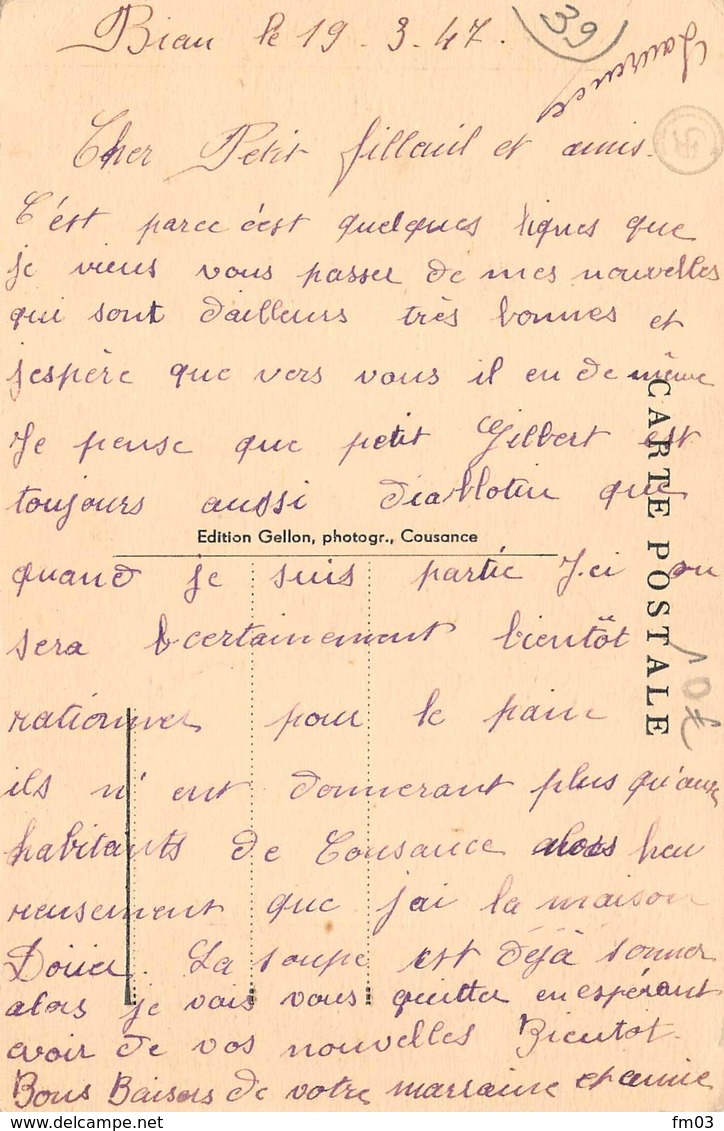 Bian le 19 . 3 . 47.
39
Laurence
Cher Petit fillaul et amis.
C'est parce c'est quelques lignes que
je viens vous passer de mes nouvelles
qui sont d'ailleurs très bonnes et
j'espère que vers vous il en de même
Je pense que petit Gilbert est
toujours aussi diablotin que
Edition Gellon, photogr., Cousance
CARTE POSTALE
quand je suis partie Ici on
sera certainement bientôt
rationner pour le pain
ils n'ent donnerant plus qu'aux
habitants de Cousance alors heu
reusement que j'ai la maison
Douce. La soupe est déjà sonner
alors je vais vous quitter en espérant
avoir de vos nouvelles Bientot.
Bons Baisers de votre marraine et amie
10f
fm03